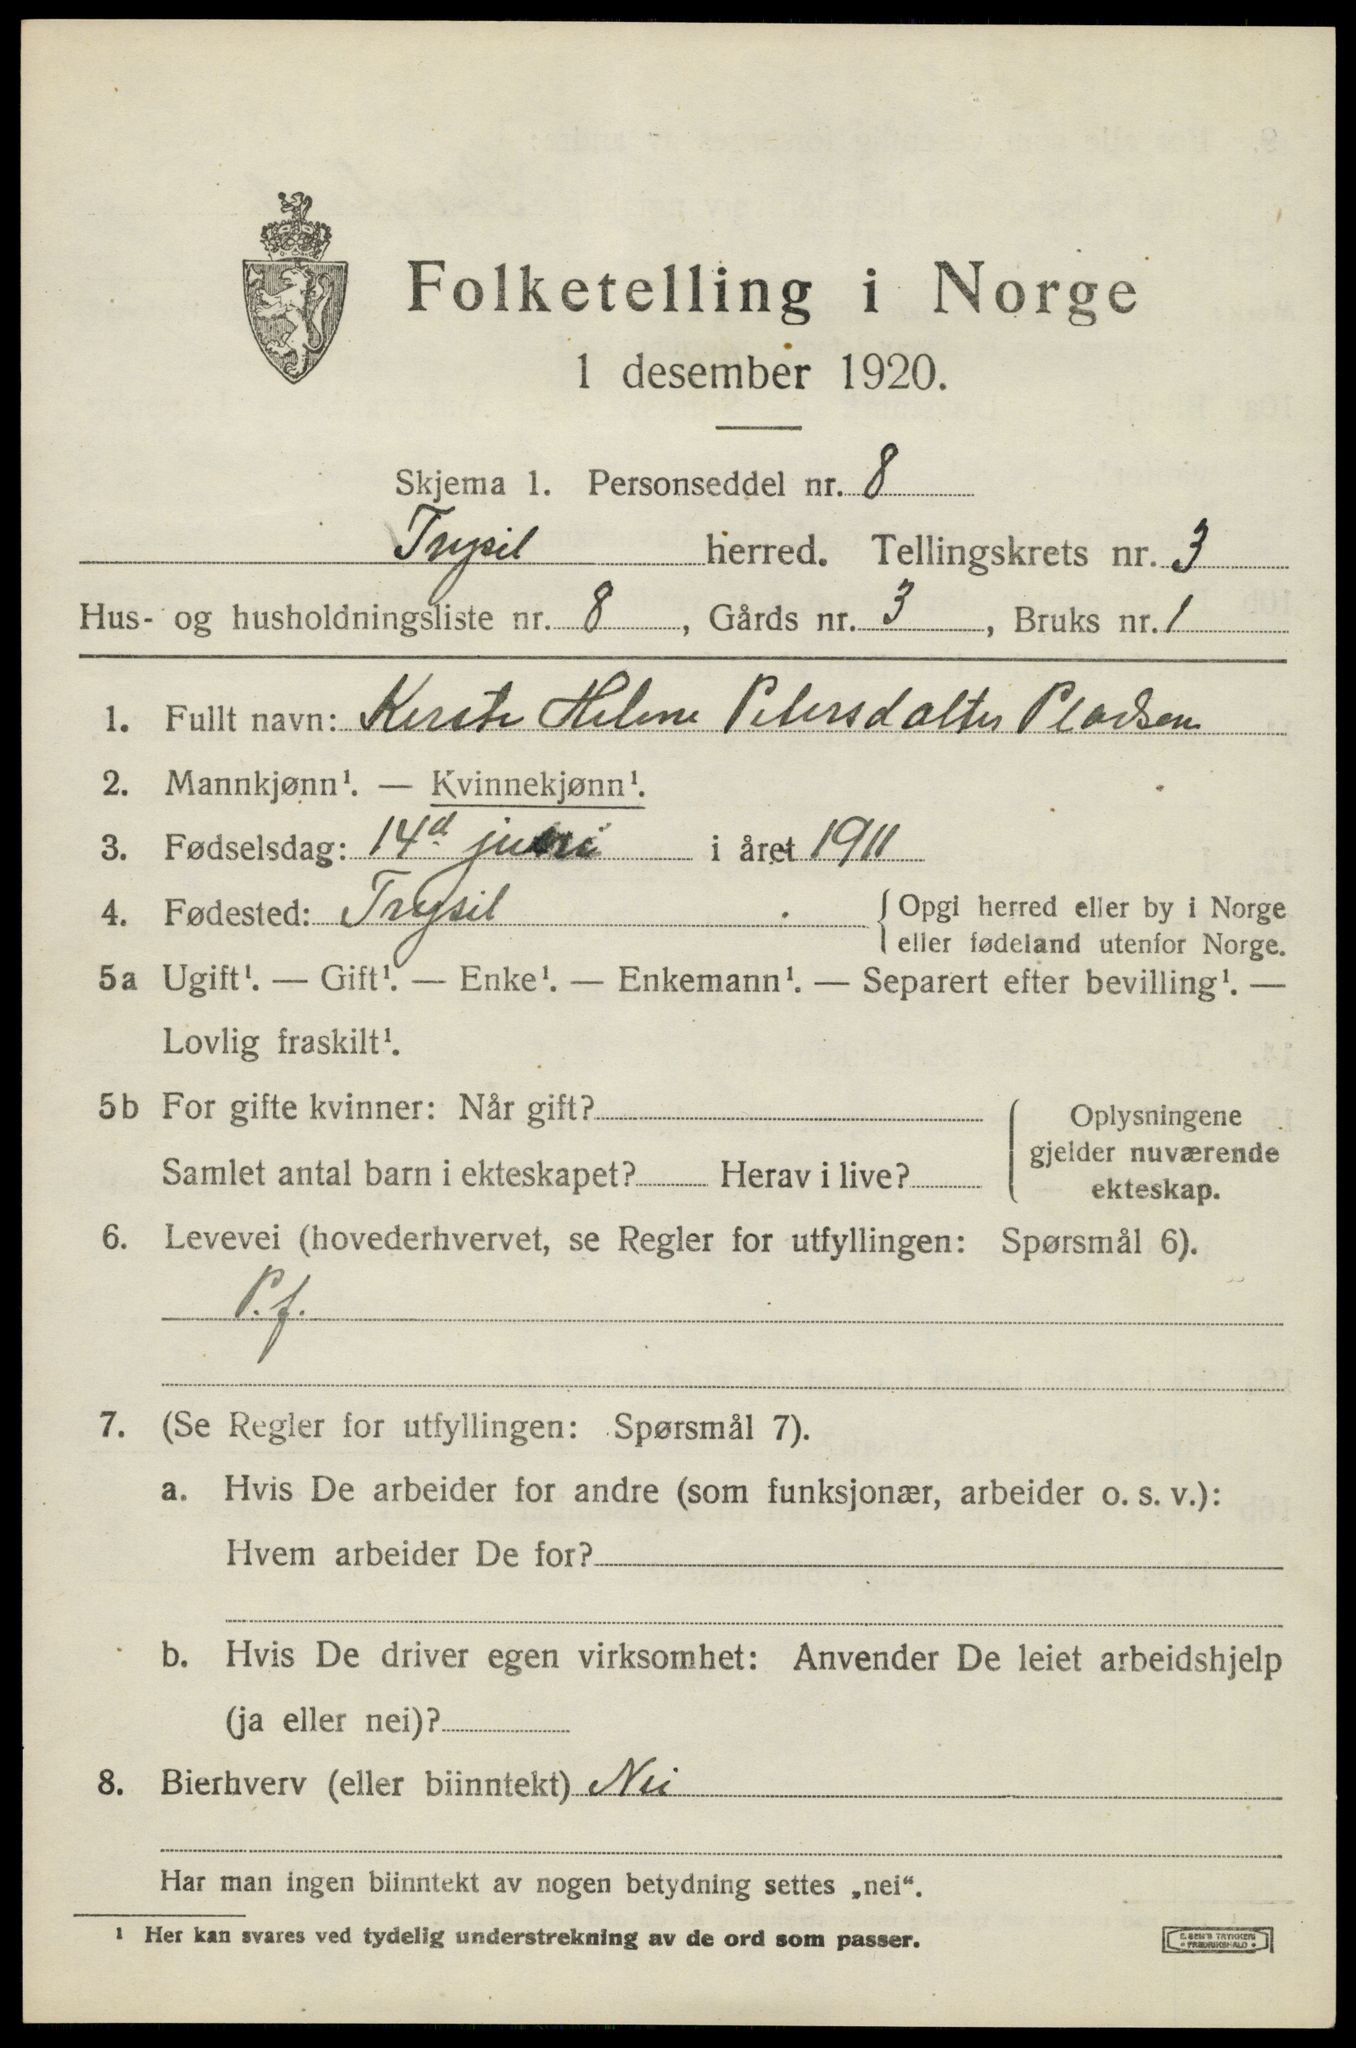 Folketelling i Norge
1 desember 1920.
Skjema 1. Personseddel nr. 8
Trysil herred. Tellingskrets nr. 3
Hus- og husholdningsliste nr. 8, Gårds nr. 3, Bruks nr. 1
1. Fullt navn: Kerste Helene Petersdatter Pladsen
2. Mannkjønn¹. — Kvinnekjønn¹.
3. Fødselsdag: 14d i året 1911
4. Fødested: Trysil { Opgi herred eller by i Norge
eller fødeland utenfor Norge.
5a Ugift¹. — Gift¹. — Enke¹. — Enkemann¹. — Separert efter bevilling¹. —
Lovlig fraskilt¹.
5b For gifte kvinner: Når gift? { Oplysningene
gjelder nuværende
Samlet antal barn i ekteskapet? Herav i live? ekteskap.
6. Levevei (hovederhvervet, se Regler for utfyllingen: Spørsmål 6).
P.f.
7. (Se Regler for utfyllingen: Spørsmål 7).
a. Hvis De arbeider for andre (som funksjonær, arbeider o. s. v.):
Hvem arbeider De for?
b. Hvis De driver egen virksomhet: Anvender De leiet arbeidshjelp
(ja eller nei)?
8. Bierhverv (eller biinntekt) Nei
Har man ingen biinntekt av nogen betydning settes „nei“.
¹ Her kan svares ved tydelig understrekning av de ord som passer.
E. SEM'S TRYKKERI
• FREDRIKSHALD •